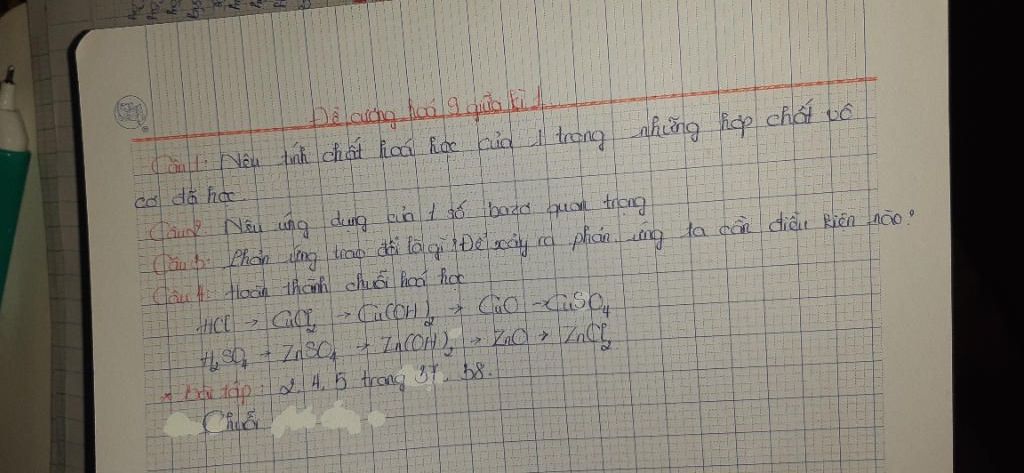 Đề cương hoá 9 giữa kì 1
Câu 1: Nêu tính chất hoá học của 1 trong những hợp chất vô
cơ đã học
Câu 2: Nêu ứng dụng của 1 số bazơ quan trọng
Câu 3: Phản ứng trao đổi là gì? Để xảy ra phản ứng ta cần điều kiện nào?
Câu 4: Hoàn thành chuỗi hoá học
HCl → CuCl₂ → Cu(OH)₂ → CuO → CuSO₄
H₂SO₄ → ZnSO₄ → Zn(OH)₂ → ZnO → ZnCl₂
* Bài tập: 2, 4, 5 trang 37, 38.
Chuỗi